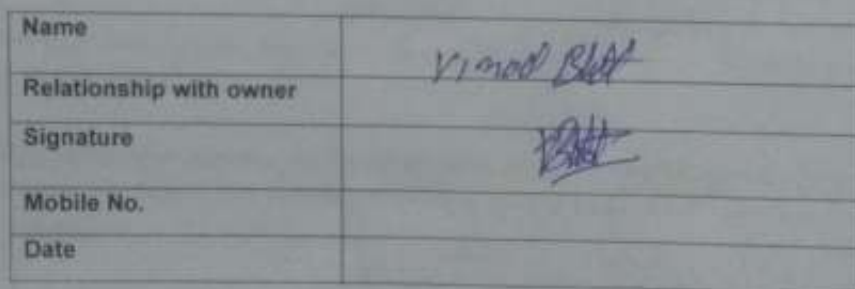 Name
Vinod Bhat
Relationship with owner
Signature
Bhat
Mobile No.
Date